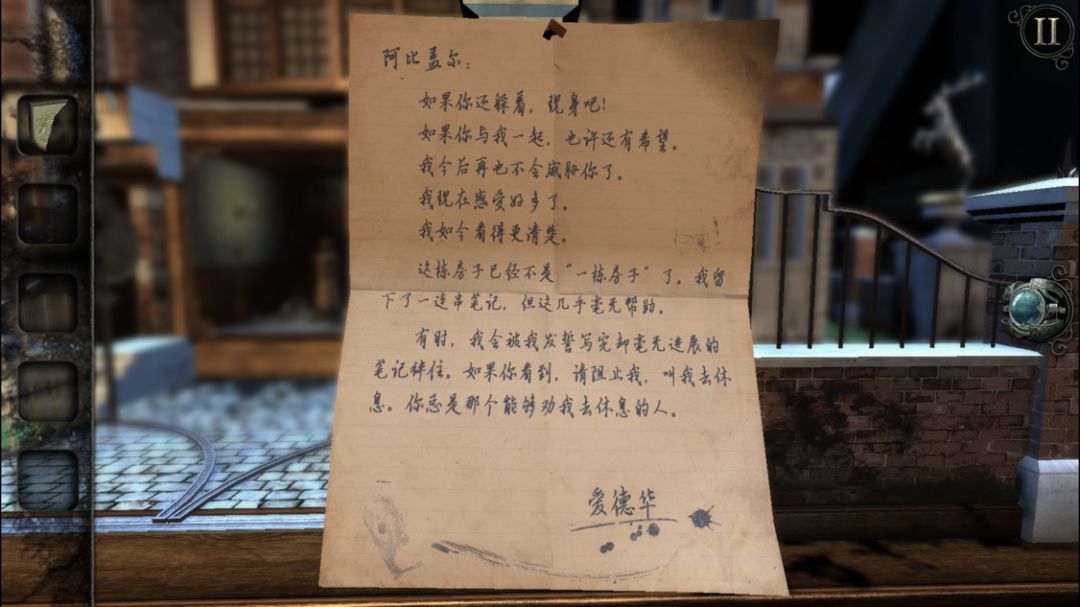 阿比盖尔：
如果你还躲着，现身吧！
如果你与我一起，也许还有希望。
我今后再也不会威胁你了。
我现在感受好多了。
我如今看得更清楚。
这栋房子已经不是“一栋房子”了。我留
下了一连串笔记，但这几乎毫无帮助。
有时，我会被我发誓写完却毫无进展的
笔记绊住。如果你看到，请阻止我，叫我去休
息。你总是那个能够劝我去休息的人。
爱德华